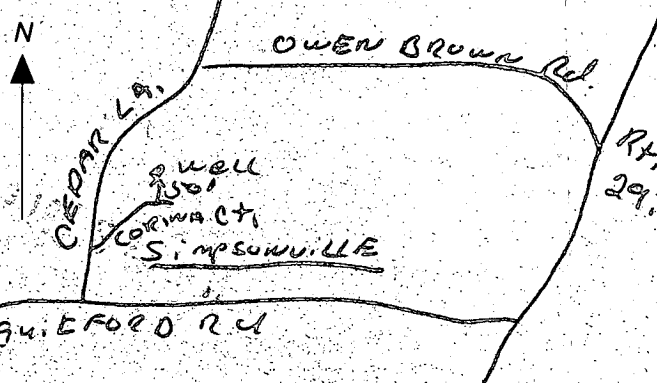 N
OWEN BROWN Rd.
CEDAR LA.
Rt.
29.
well
50'
CORINA Ct.
SIMPSONVILLE
GUIEFORD Rd